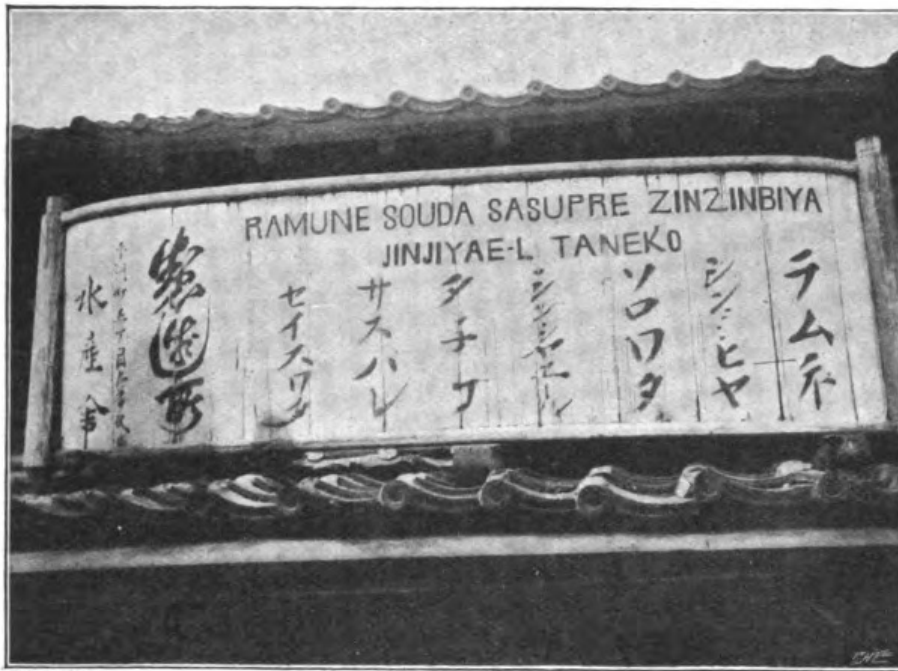 RAMUNE SOUDA SASUPRE ZINZINBIYA
JINJIYAE-L TANEKO
ラムネ
シンシンヒヤ
ソロワタ
シンシヤエール
タ子コ
サスハレ
セイスワタ
製造所
水産舎